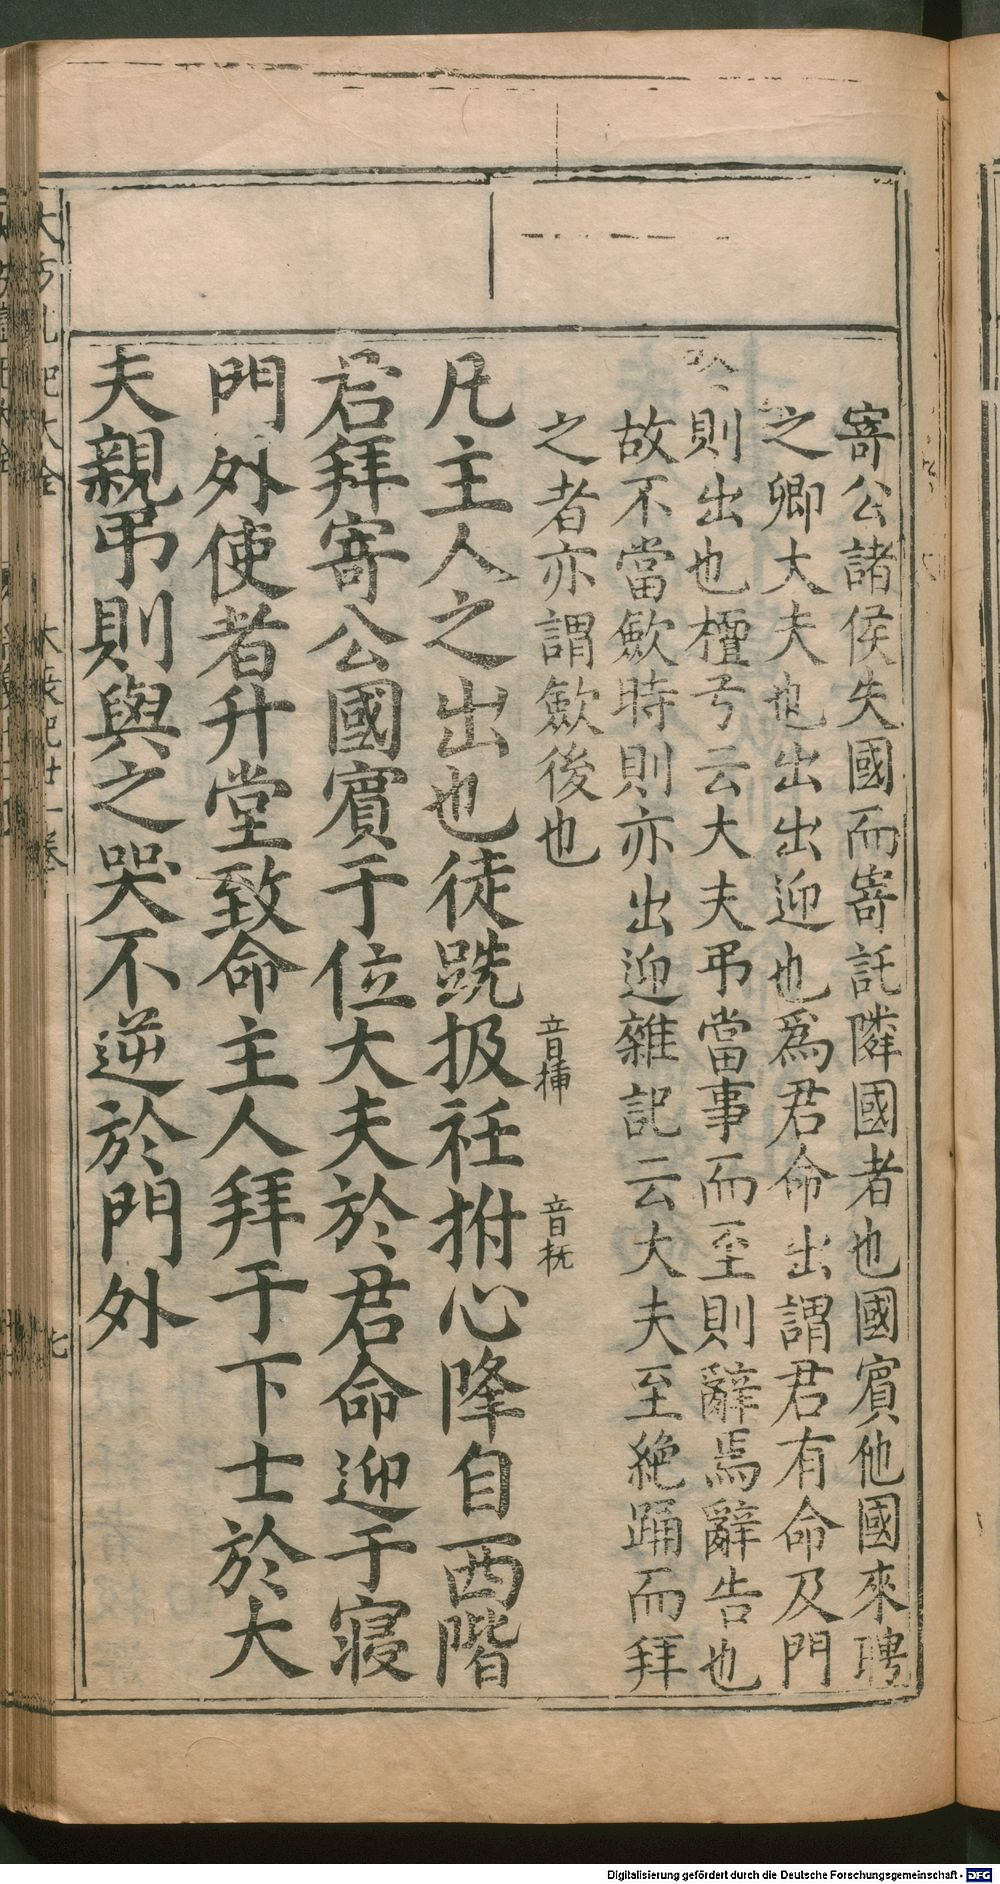 寄公諸侯失國而寄託隣國者也國賓他國來聘
之卿大夫也出出迎也爲君命出謂君有命及門
則出也檀弓云大夫弔當事而至則辭焉辭告也
故不當斂時則亦出迎雜記云大夫至絶踊而拜
之者亦謂斂後也
音揷
音抚
凡主人之出也徒跣扱衽拊心降自西階
君拜寄公國賓于位大夫於君命迎于寢
門外使者升堂致命主人拜于下士於大
夫親弔則與之哭不逆於門外
七
Digitalisierung gefördert durch die Deutsche Forschungsgemeinschaft - DFG